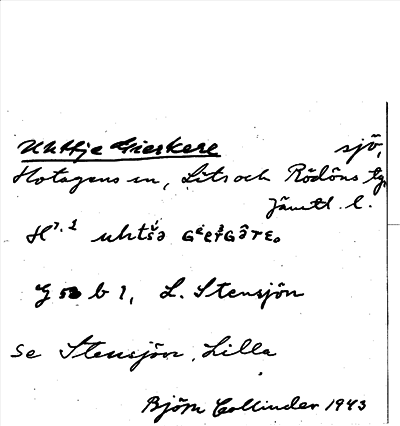 Uhttje Gierkere sjö,
Hotagens sn, Lits och Rödöns tg,
Jämtl. l.
H 7.1 uhtsə
G 5D b 1, L. Stensjön
Se Stensjön, Lilla
Björn Collinder 1943